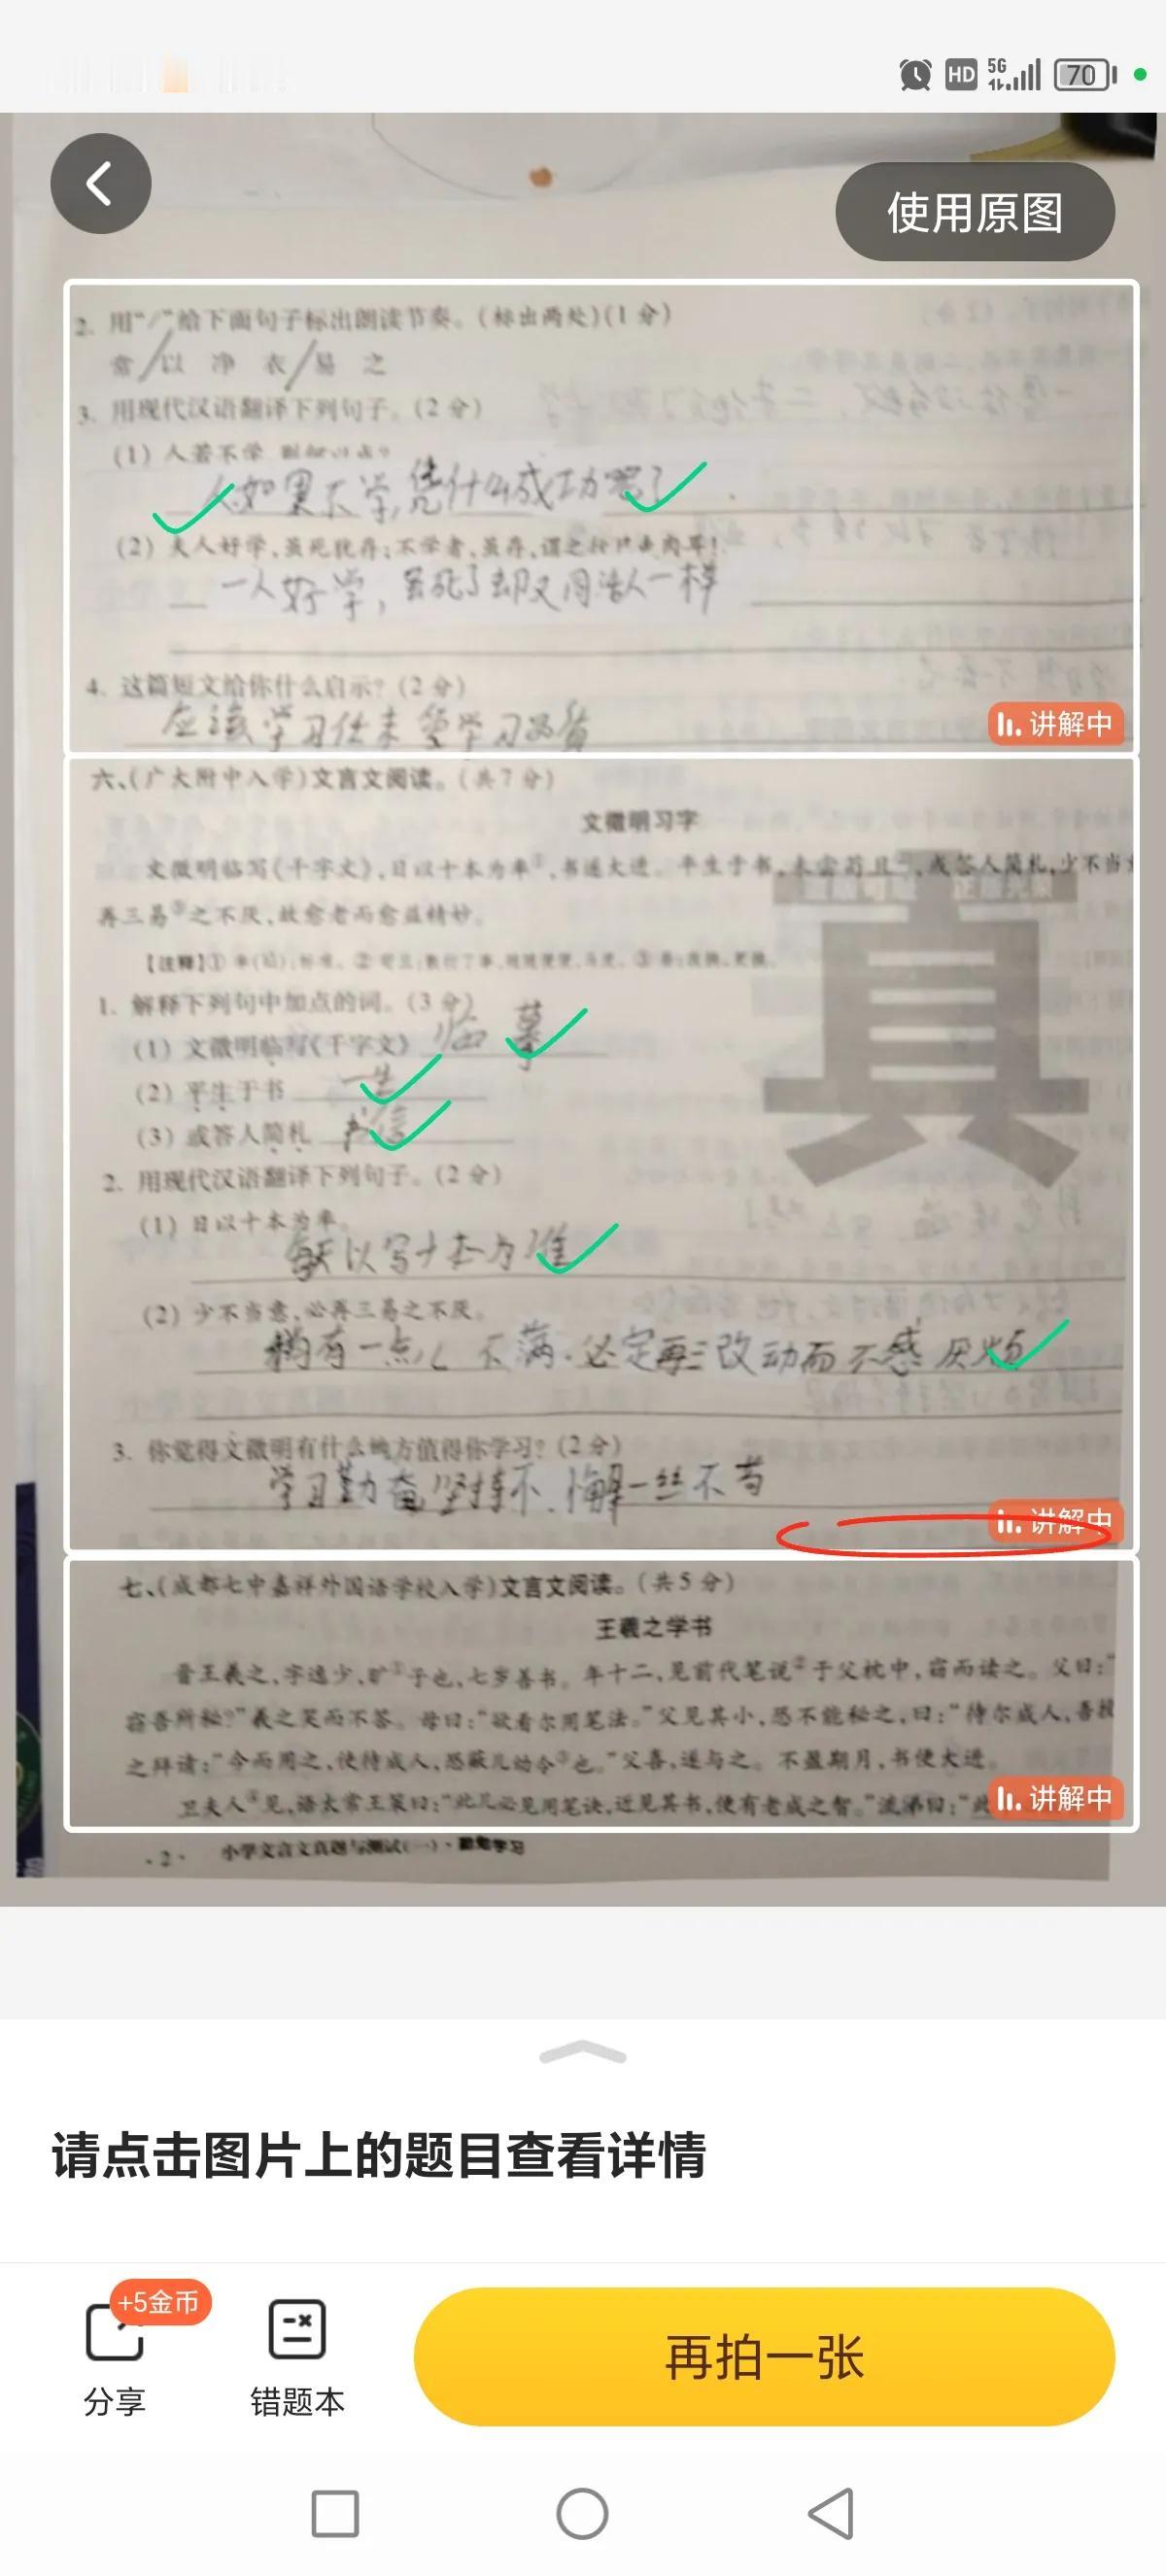 HD 5G 70
使用原图
2. 用“/”给下面句子标出朗读节奏。(标出两处)(1分)
常/以 净 衣/易 之
3. 用现代汉语翻译下列句子。(2分)
(1) 人若不学
人如果不学,凭什么成功呢?
(2) 夫人好学,虽死犹存;不学者,虽存,谓之行尸走肉耳!
一人好学,虽死了却又同活人一样
4. 这篇短文给你什么启示?(2分)
应该学习任末 学习品质
讲解中
六、(广大附中入学)文言文阅读。(共7分)
文徵明习字
文徵明临写《千字文》,日以十本为率①,书遂大进。平生于书,未尝苟且②,或答人简札,少不当意
再三易③之不厌,故愈老而愈益精妙。
【注释】①率(lǜ):标准。②苟且:敷衍了事,随随便便,马虎。③易:改换,更换。
1. 解释下列句中加点的词。(3分)
(1) 文徵明临写《千字文》 临摹
(2) 平生于书 一生
(3) 或答人简札 书信
2. 用现代汉语翻译下列句子。(2分)
(1) 日以十本为率。
每天以写十本为准
(2) 少不当意,必再三易之不厌。
稍有一点儿不满.必定再三改动而不感厌烦
3. 你觉得文徵明有什么地方值得你学习?(2分)
学习勤奋 坚持不懈 一丝不苟
讲解中
七、(成都七中嘉祥外国语学校入学)文言文阅读。(共5分)
王羲之学书
晋王羲之,字逸少,旷①子也,七岁善书。年十二,见前代笔说②于父枕中,窃而读之。父曰:“
窃吾所秘?”羲之笑而不答。母曰:“欲看尔用笔法。”父见其小,恐不能秘之,曰:“待尔成人,吾授
之拜请:“今而用之,使待成人,恐蔽儿幼令③也。”父喜,遂与之。不盈期月,书便大进。
卫夫人④见,语太常王策曰:“此儿必见用笔诀,近见其书,便有老成之智。”流涕曰:“此
讲解中
·2· 小学文言文真题与测试(一)·
真
请点击图片上的题目查看详情
+5金币
分享
错题本
再拍一张